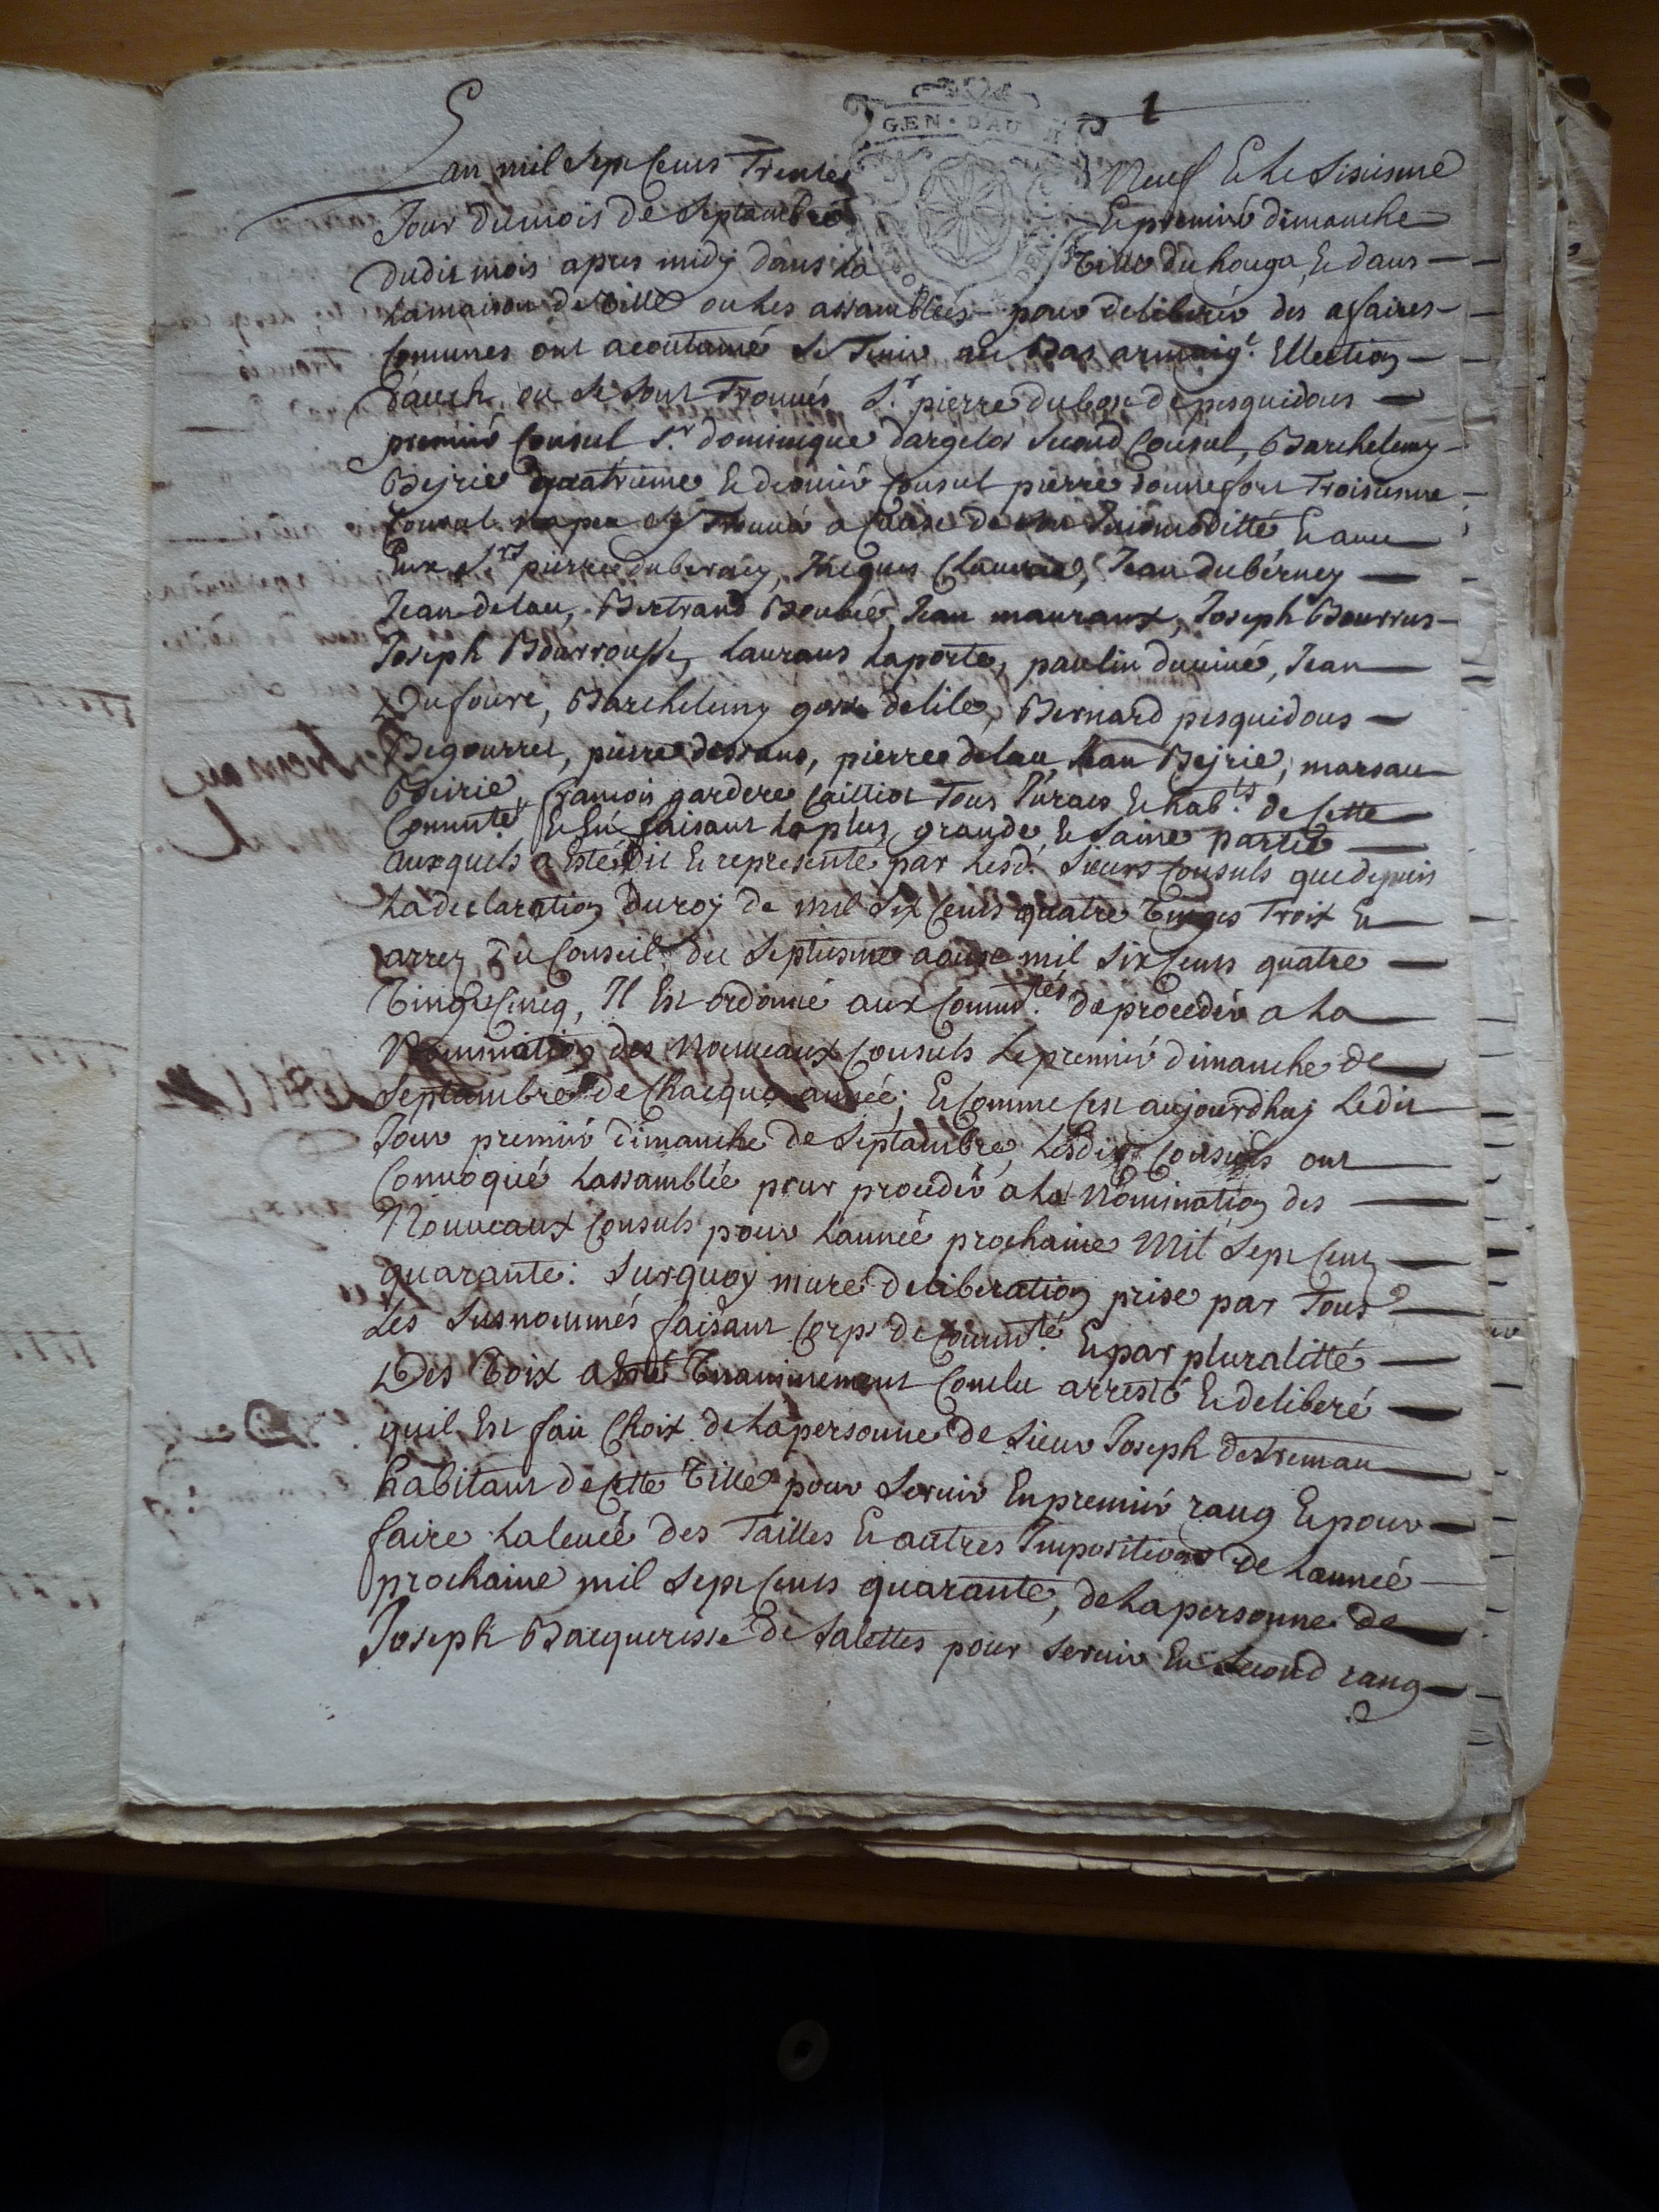 1
GEN · D'AU
Lan mil Sept Cens Trente Neuf Et le Sixiesme
Jour du mois de Septambre Le premiér dimanche
dudit mois apres midy dans la Ville du houga, Et dans
La maison de Ville ou Les assamblées pour deliberér des afaires
Comunes ont acoutumé de Tenir au Bas armaig.c Ellection
d'auch. ou se sont Trouués S.r pierre dubosc de pesquidous
premiér Consul S.r dominique dargelos second Consul, Barthelemy
Bejrie quatrieme Et derniér Consul pierre donnefort Troisiesme
Consul na peu sy Trouué a Cause de son Incomoditté Et auec
Eux S.rs pierre duberney, Jacques Jean duberney
Jean delau, Bertrand Boubée, Jean mauraux, Joseph Bourrus
Joseph Bourrousse, Laurans Laporte, paulin duviné, Jean
Dufourc, Barthelemy delile, Bernard pesquidous
Begourret, pierre dessans, pierre delau Jean Bejrie, marsau
Beirie, francois gardere Caillot Tous Jurats Et hab.ts de Cette
Comun.té Et En faisant La plus grande, Et Saine partie
Auxquels a Esté dit Et representé par Lesd. Sieurs Consuls que depuis
La declaration du roy de mil six Cens quatre Vings Troix Et
arrey du Conseil du Septiesme aoust mil six Cens quatre
Vingt Cincq, Il Est ordonné aux Comun.tés de procedér a La
Nomination des Nouveaux Consuls Le premiér dimanche de
Septambre de Chacque année; Et Comme Cest aujourdhuy Ledit
Jour premiér dimanche de Septambre, Lesdits Consuls ont
Conuoqué Lassamblée pour procedér a La Nomination des
Nouveaux Consuls pour Lannée prochaine Mil Sept Cens
quarante: Surquoy mure deliberation prise par Tous
Les Susnommés faisant Corps de Comun.té Et par pluralitté
Des Voix a Esté Vnanimement Conclu arresté Et deliberé
quil Est fait Choix de La personne de Sieur Joseph destremau
habitant de Cette Ville pour Servir En premiér rang Et pour
faire La leuée des Tailles Et autres Impositions de Lannée
prochaine mil Sept Cens quarante, de La personne de
Joseph Bacquerisse de Salettes pour Servir En Second rang